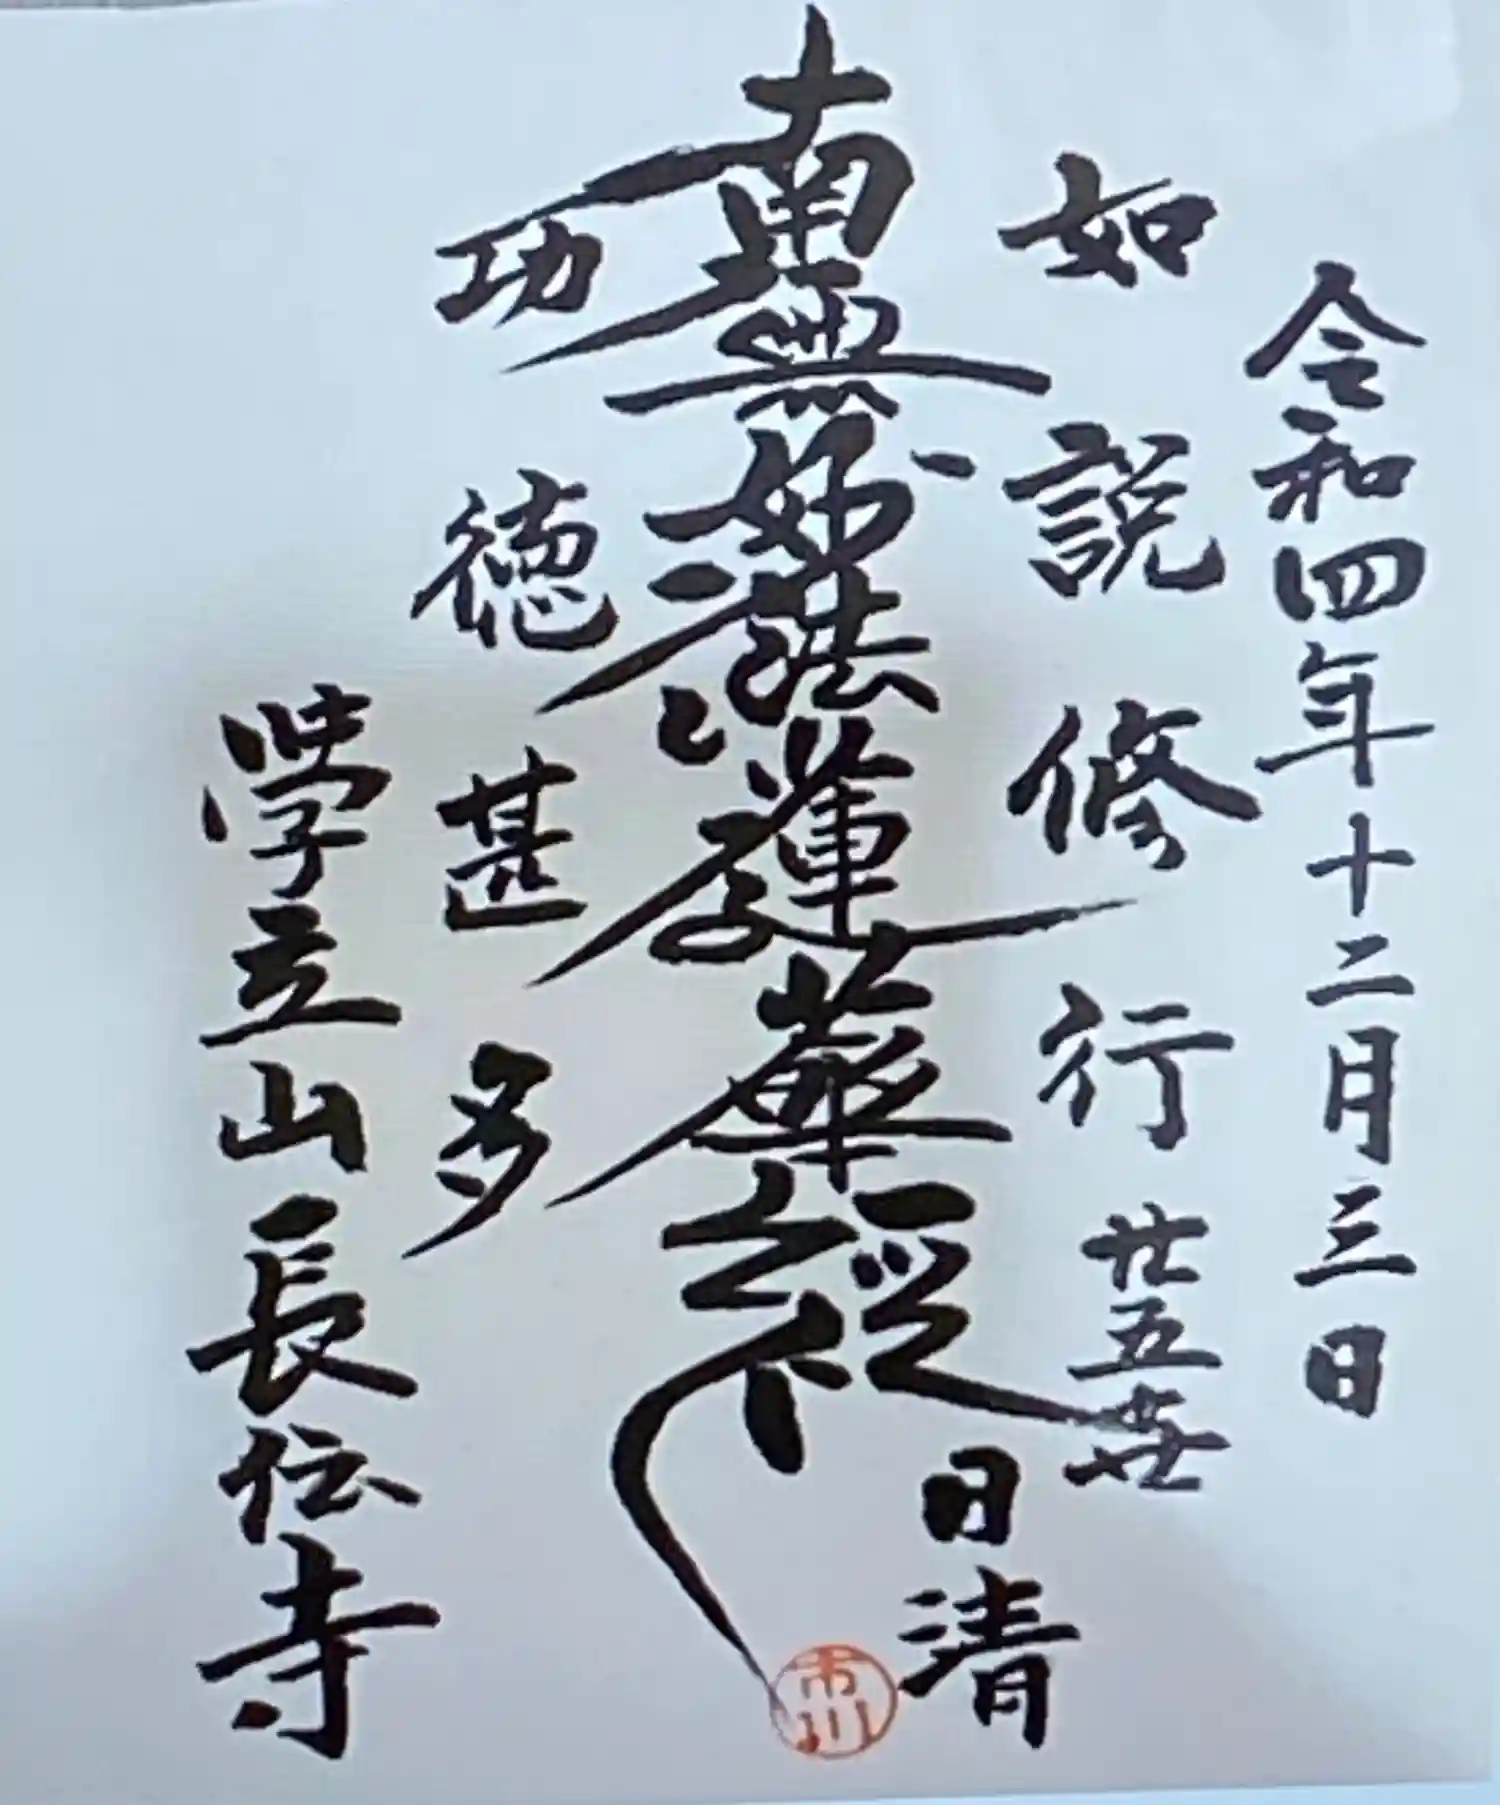 令和四年十二月三日
如説修行
廿五世
日清
南無妙法蓮華経
功徳甚多
学立山長伝寺
市川